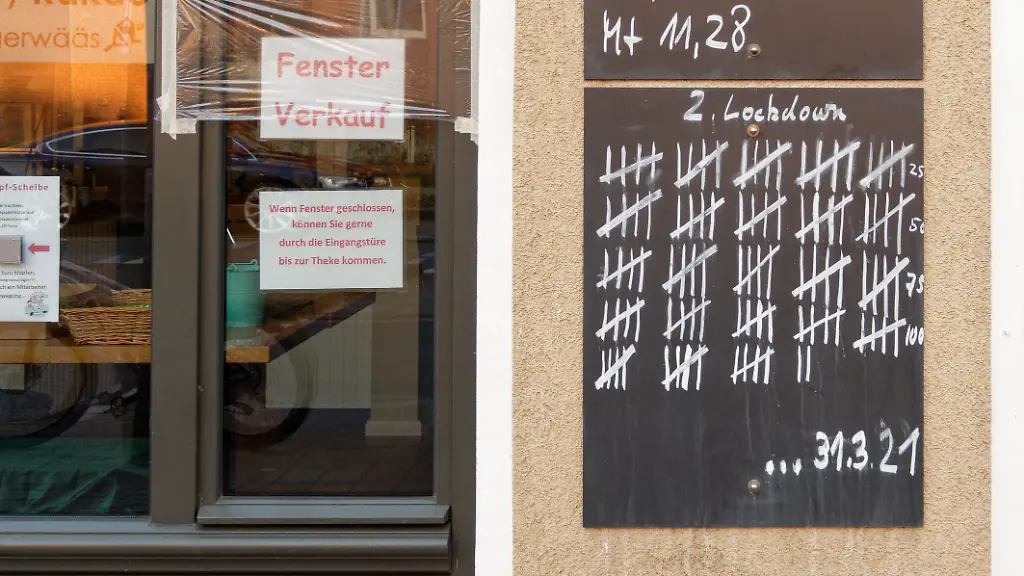 gerwääs
Fenster
Verkauf
pf-Scheibe
Wenn Fenster geschlossen,
können Sie gerne
durch die Eingangstüre
bis zur Theke kommen.
Mt 11,28
2. Lockdown
25
50
75
100
... 31.3.21